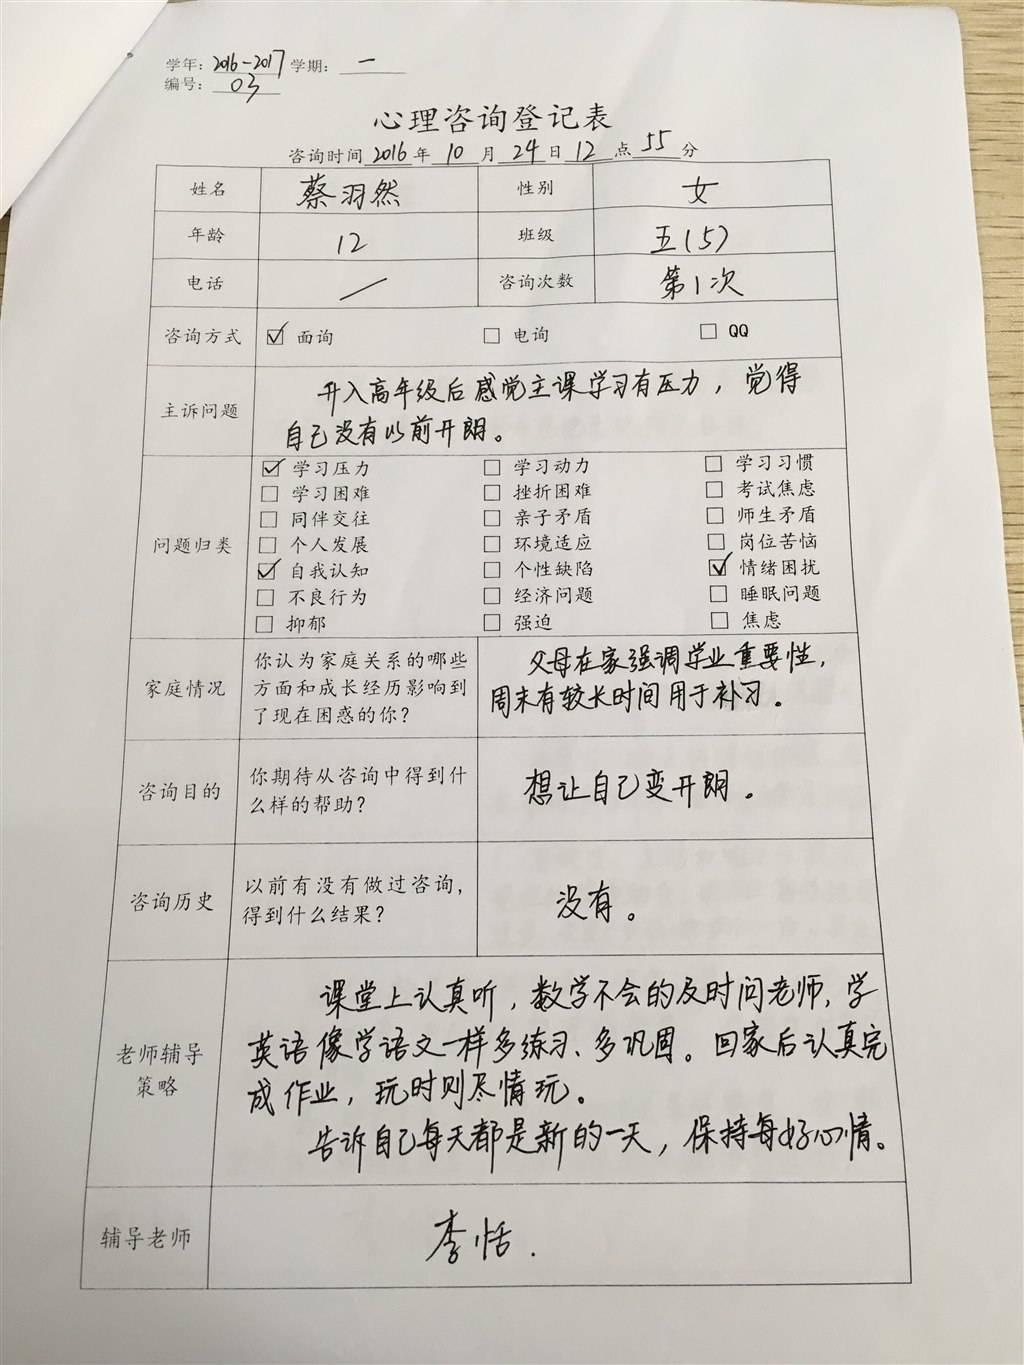 学年：2016-2017 学期：一
编号：03
心理咨询登记表
咨询时间 2016 年 10 月 24 日 12 点 55 分
姓名 蔡羽然 性别 女
年龄 12 班级 五(5)
电话 / 咨询次数 第1次
咨询方式 ☑ 面询 □ 电询 □ QQ
主诉问题
升入高年级后感觉主课学习有压力，觉得
自己没有以前开朗。
问题归类
☑ 学习压力 □ 学习动力 □ 学习习惯
□ 学习困难 □ 挫折困难 □ 考试焦虑
□ 同伴交往 □ 亲子矛盾 □ 师生矛盾
□ 个人发展 □ 环境适应 □ 岗位苦恼
☑ 自我认知 □ 个性缺陷 ☑ 情绪困扰
□ 不良行为 □ 经济问题 □ 睡眠问题
□ 抑郁 □ 强迫 □ 焦虑
家庭情况
你认为家庭关系的哪些
方面和成长经历影响到
了现在困惑的你？
父母在家强调学业重要性，
周末有较长时间用于补习。
咨询目的
你期待从咨询中得到什
么样的帮助？
想让自己变开朗。
咨询历史
以前有没有做过咨询，
得到什么结果？
没有。
老师辅导
策略
课堂上认真听，数学不会的及时问老师，学
英语像学语文一样多练习、多巩固。回家后认真完
成作业，玩时则尽情玩。
告诉自己每天都是新的一天，保持每好心情。
辅导老师
李恬.